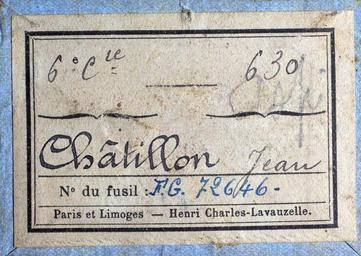 6° Cie — 630
Châtillon Jean
N° du fusil : F.G. 72646 -
Paris et Limoges — Henri Charles-Lavauzelle.